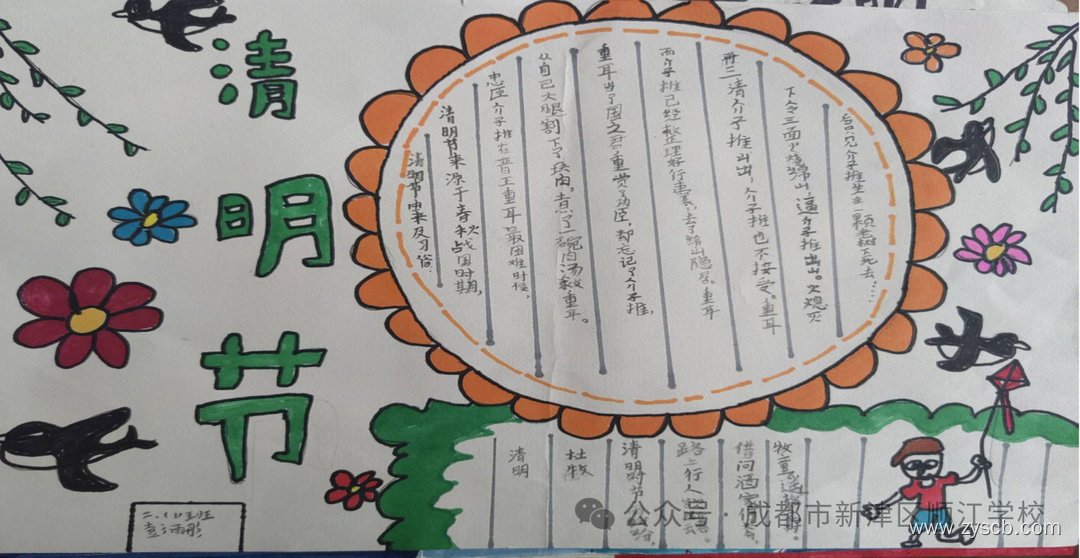 清明节
清明节由来及习俗
清明节来源于春秋战国时期，
忠臣介子推在晋王重耳最困难时候，
从自己大腿割下了块肉，煮了一碗肉汤救重耳。
重耳当了国之君重赏了功臣，却忘记了介子推，
而介子推已经整理好行囊，去了绵山隐居，重耳
再三请介子推出山，介子推也不接受。重耳
下令三面火烧绵山，逼介子推出山。火熄灭
后只见介子推坐在一颗老树下死去……
清明
杜牧
清明时节
路上行人
借问酒家何处有，
牧童遥指
二、(1)班
公众号·成都市新津区顺江学校
www.zyscb.com